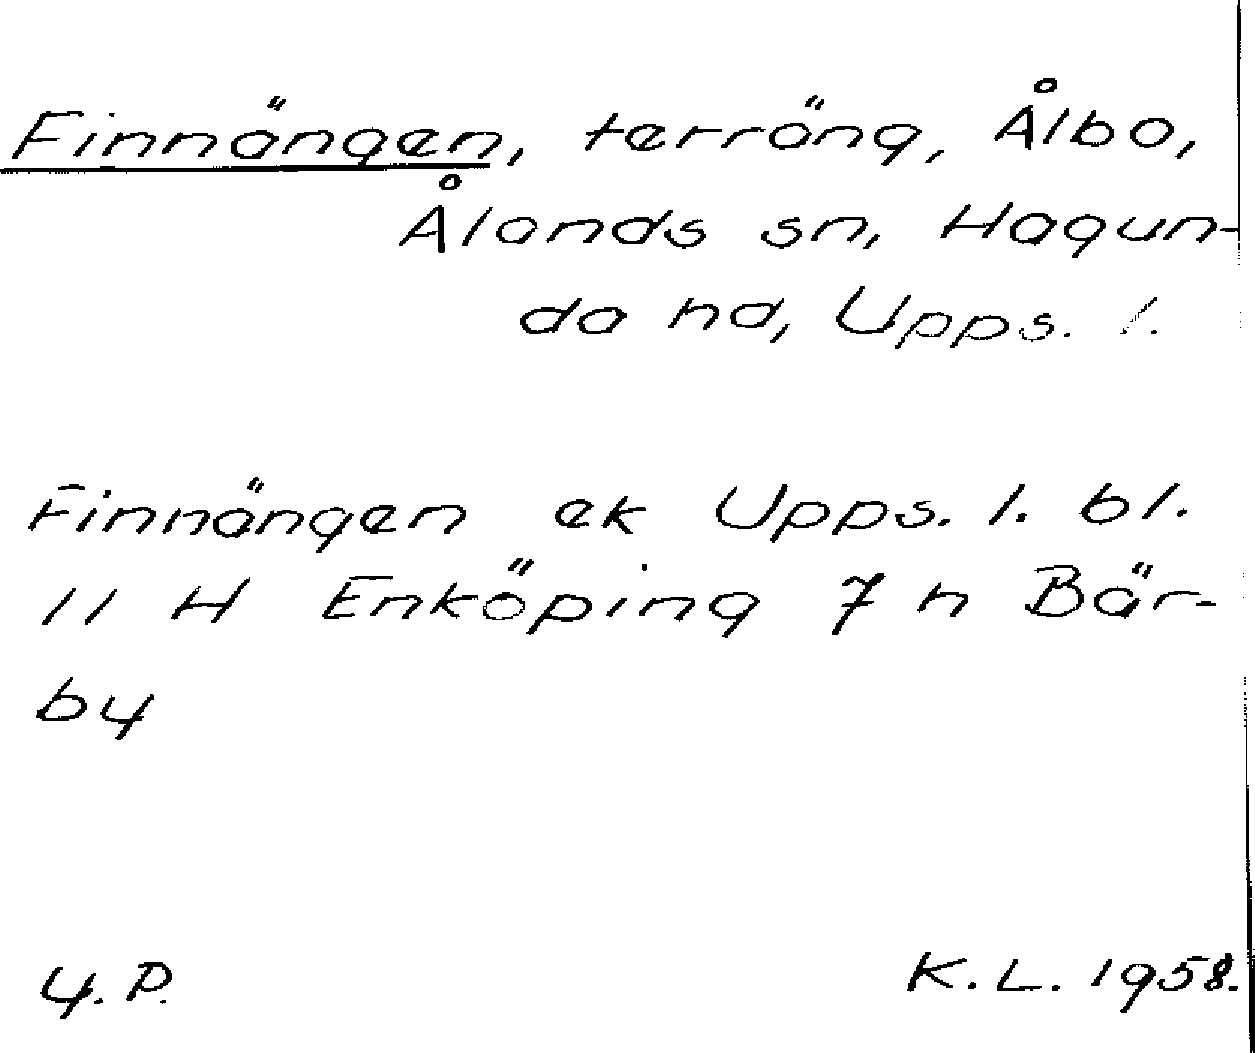 Finnängen, terräng, Ålbo,
Ålands sn, Hagun-
da hd, Upps. l.
Finnängen ek Upps. l. bl.
11 H Enköping 7 h Bär-
by
Y. P.
K. L. 1958.